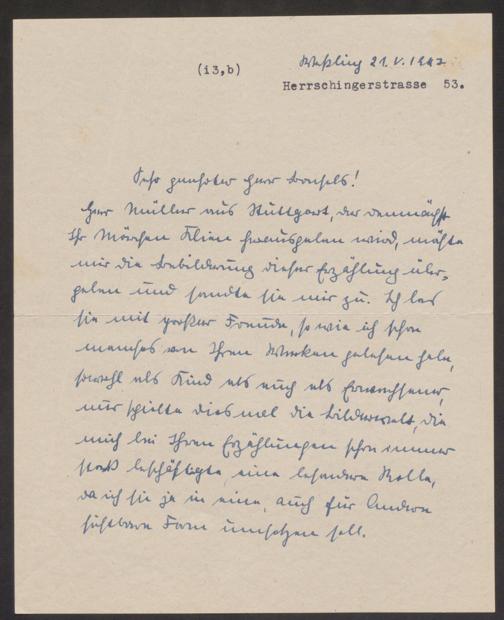 (13,b)
Weßling 21. V. 1942
Herrschingerstrasse 53.
Sehr geehrter Herr Bonsels!
Herr Müller aus Stuttgart, der demnächst
Ihr Märchen herausgeben wird, möchte
mir die Bebilderung dieser Erzählung über-
geben und sandte sie mir zu. Ich las
sie mit großer Freude, so wie ich schon
manches von Ihren Werken gelesen habe,
sowohl als Kind als auch als Erwachsener,
nur spielte dies mal die Bilderwelt, die
mich bei Ihren Erzählungen schon immer
stark beschäftigte, eine besondere Rolle,
da ich sie ja in eine, auch für Andere
sichtbare Form umsetzen soll.